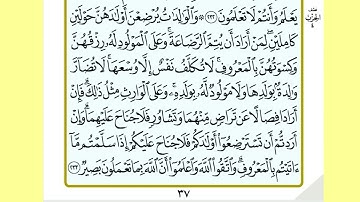 نصف
الحزب
٤
يَعْلَمُ وَأَنتُمْ لَا تَعْلَمُونَ ﴿٢٣٢﴾ ۞ وَالْوَالِدَاتُ يُرْضِعْنَ أَوْلَادَهُنَّ حَوْلَيْنِ
كَامِلَيْنِ ۖ لِمَنْ أَرَادَ أَن يُتِمَّ الرَّضَاعَةَ ۚ وَعَلَى الْمَوْلُودِ لَهُ رِزْقُهُنَّ
وَكِسْوَتُهُنَّ بِالْمَعْرُوفِ ۚ لَا تُكَلَّفُ نَفْسٌ إِلَّا وُسْعَهَا ۚ لَا تُضَارَّ
وَالِدَةٌ بِوَلَدِهَا وَلَا مَوْلُودٌ لَّهُ بِوَلَدِهِ ۚ وَعَلَى الْوَارِثِ مِثْلُ ذَٰلِكَ ۗ فَإِنْ
أَرَادَا فِصَالًا عَن تَرَاضٍ مِّنْهُمَا وَتَشَاوُرٍ فَلَا جُنَاحَ عَلَيْهِمَا ۗ وَإِنْ
أَرَدتُّمْ أَن تَسْتَرْضِعُوا أَوْلَادَكُمْ فَلَا جُنَاحَ عَلَيْكُمْ إِذَا سَلَّمْتُم مَّا
آتَيْتُم بِالْمَعْرُوفِ ۗ وَاتَّقُوا اللَّهَ وَاعْلَمُوا أَنَّ اللَّهَ بِمَا تَعْمَلُونَ بَصِيرٌ ﴿٢٣٣﴾
٣٧